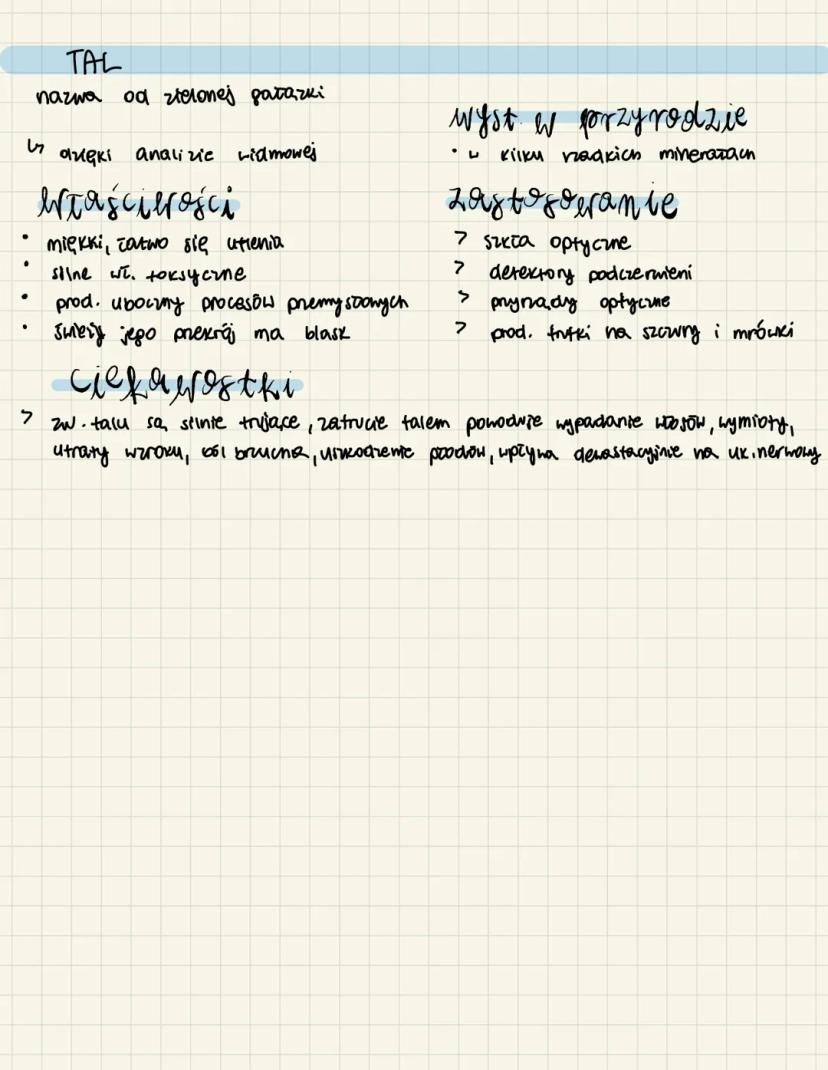 TAL
nazwa od zielonej gałązki
↳ dzięki analizie widmowej
właściwości
• miękki, łatwo się utlenia
• silne wł. toksyczne
• prod. uboczny procesów przemysłowych
• świeży jego przekrój ma blask
wyst. w przyrodzie
• w kilku rzadkich minerałach
zastosowanie
> szkła optyczne
> detektory podczerwieni
> przyrządy optyczne
> prod. trutki na szczury i mrówki
ciekawostki
> zw. talu są silnie trujące, zatrucie talem powoduje wypadanie włosów, wymioty,
utraty wzroku, ból brzucha, uszkodzenie płodów, wpływa dewastacyjnie na uk. nerwowy